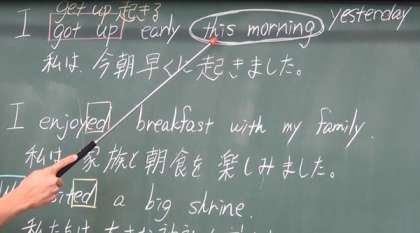 get up 起きる
yesterday
I got up early this morning
私は、今朝早くに起きました。
I enjoyed breakfast with my family.
私は家族と朝食を楽しみました。
ed a big shrine.